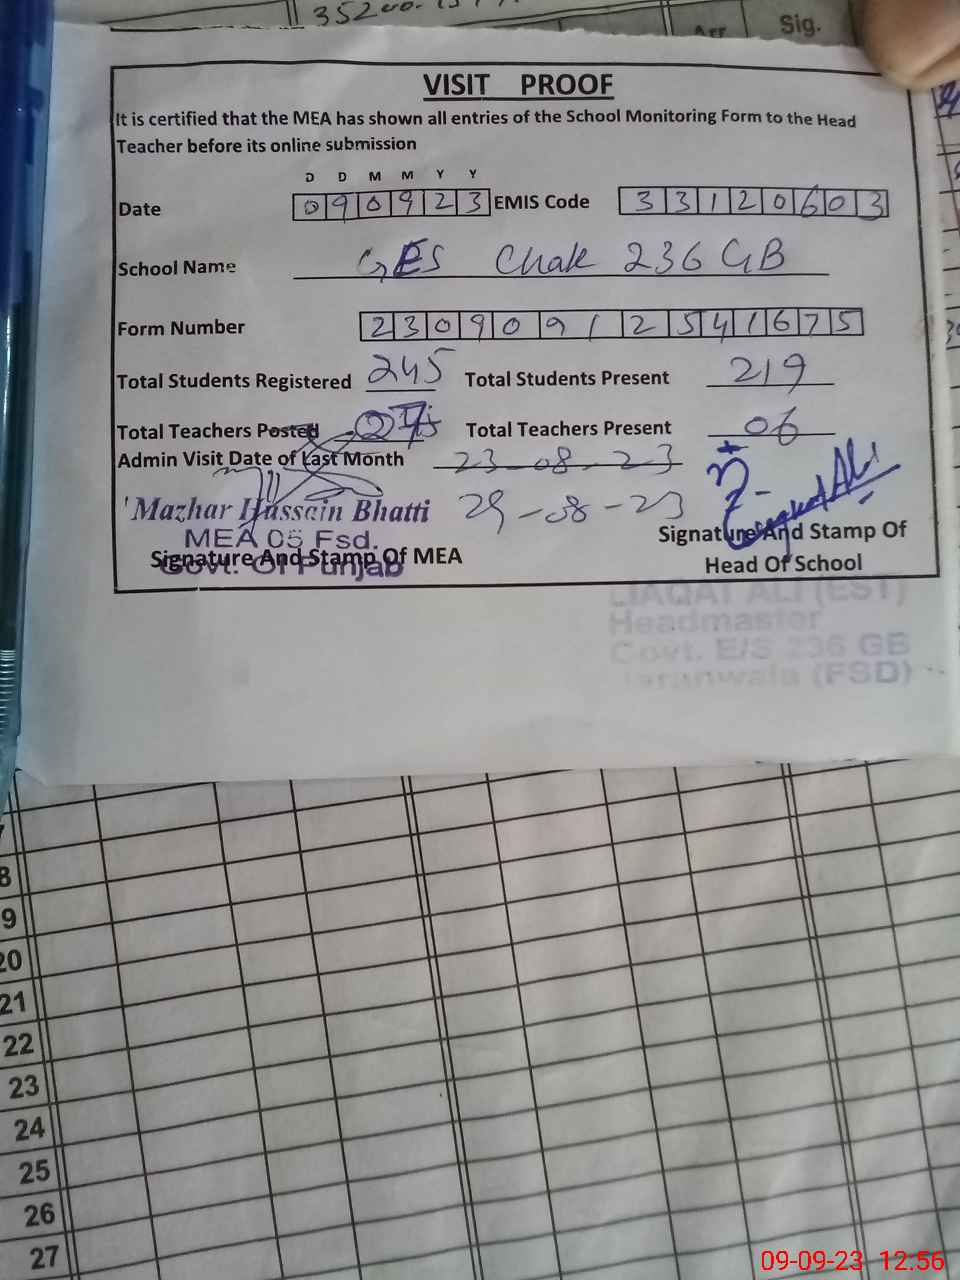 Sig.
VISIT PROOF
It is certified that the MEA has shown all entries of the School Monitoring Form to the Head
Teacher before its online submission
D D M M Y Y
Date 090923 EMIS Code 33120603
School Name GES Chak 236 GB
Form Number 23090912541675
Total Students Registered 245 Total Students Present 219
Total Teachers Posted Total Teachers Present 06
Admin Visit Date of Last Month 23-08-23
Mazhar Hussain Bhatti 29-08-23
MEA 05 Fsd.
Govt. Of Punjab
Signature And Stamp Of MEA
Signature And Stamp Of
Head Of School
LIAQAT ALI (EST)
Headmaster
Govt. E/S 236 GB
Jaranwala (FSD)
8
9
20
21
22
23
24
25
26
27
09-09-23 12:56